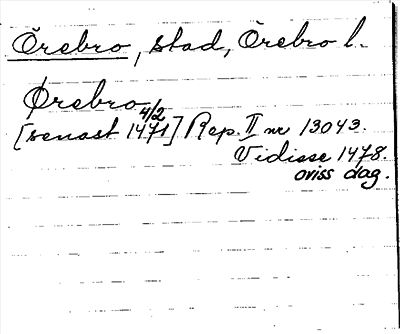 Örebro, stad, Örebro l.
Ørebro
4/2
[senast 1471] Rep. II nr 13043.
Vidisse 1478.
oviss dag.